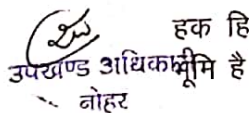 हक हि
उपखण्ड अधिकारी
भूमि है
नोहर